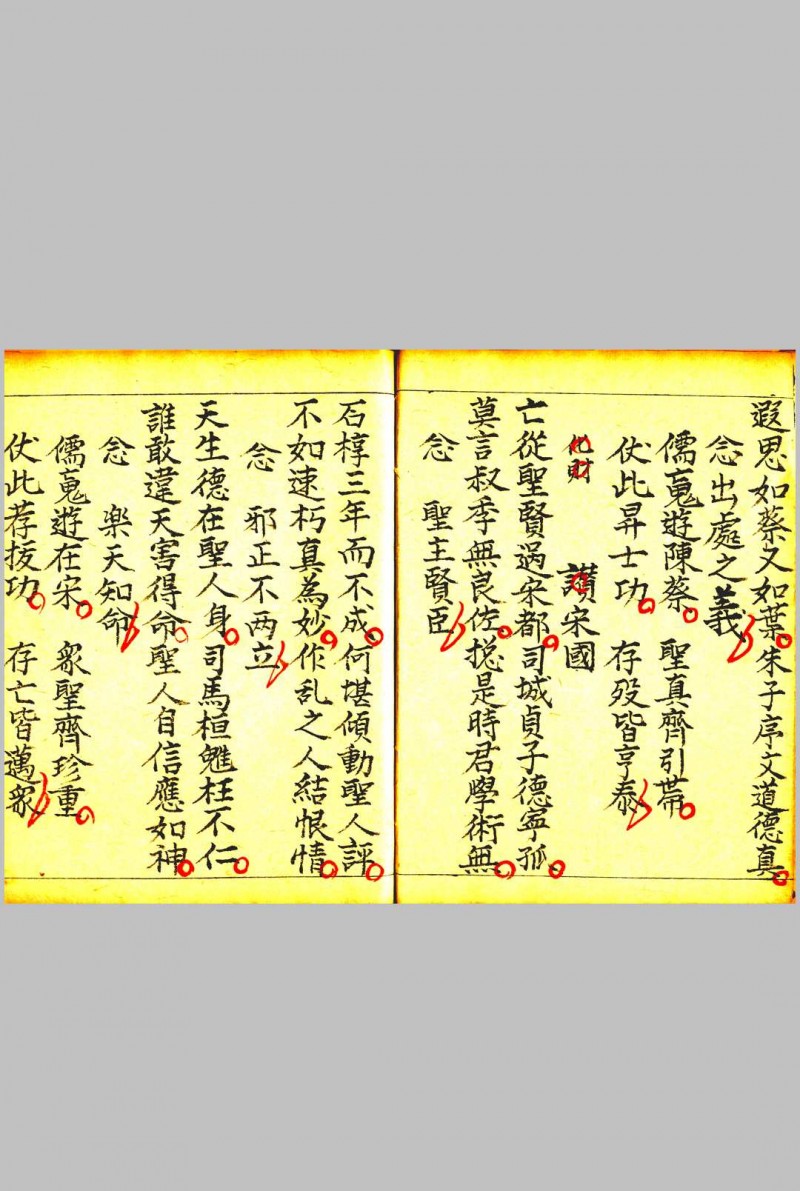 遐思如蔡又如葉。朱子序文道德真。
念出處之義
儒䰟遊陳蔡。聖真齊引帶。
仗此昇士功。存殁皆亨泰
化財 讃宋國
亡從聖賢過宋都。司城貞子德寜孤。
莫言叔季無良佐。捴是時君學術無。
念 聖主賢臣
石椁三年而不成。何堪傾動聖人評。
不如速朽真為妙。作乱之人結恨情。
念 邪正不两立
天生德在聖人身。司馬桓魋枉不仁。
誰敢違天害得命。聖人自信應如神。
念 楽天知命
儒䰟遊在宋。衆聖齊珍重。
仗此荐拔功。存亡皆邁衆